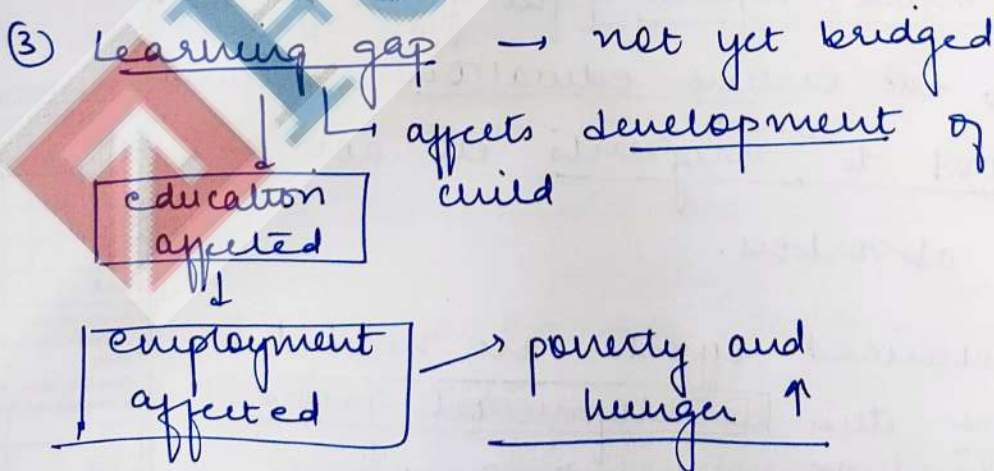 ③ Learning gap → not yet bridged
↓ ↳ affects development of child
education
affected
↓
employment
affected → poverty and
hunger ↑